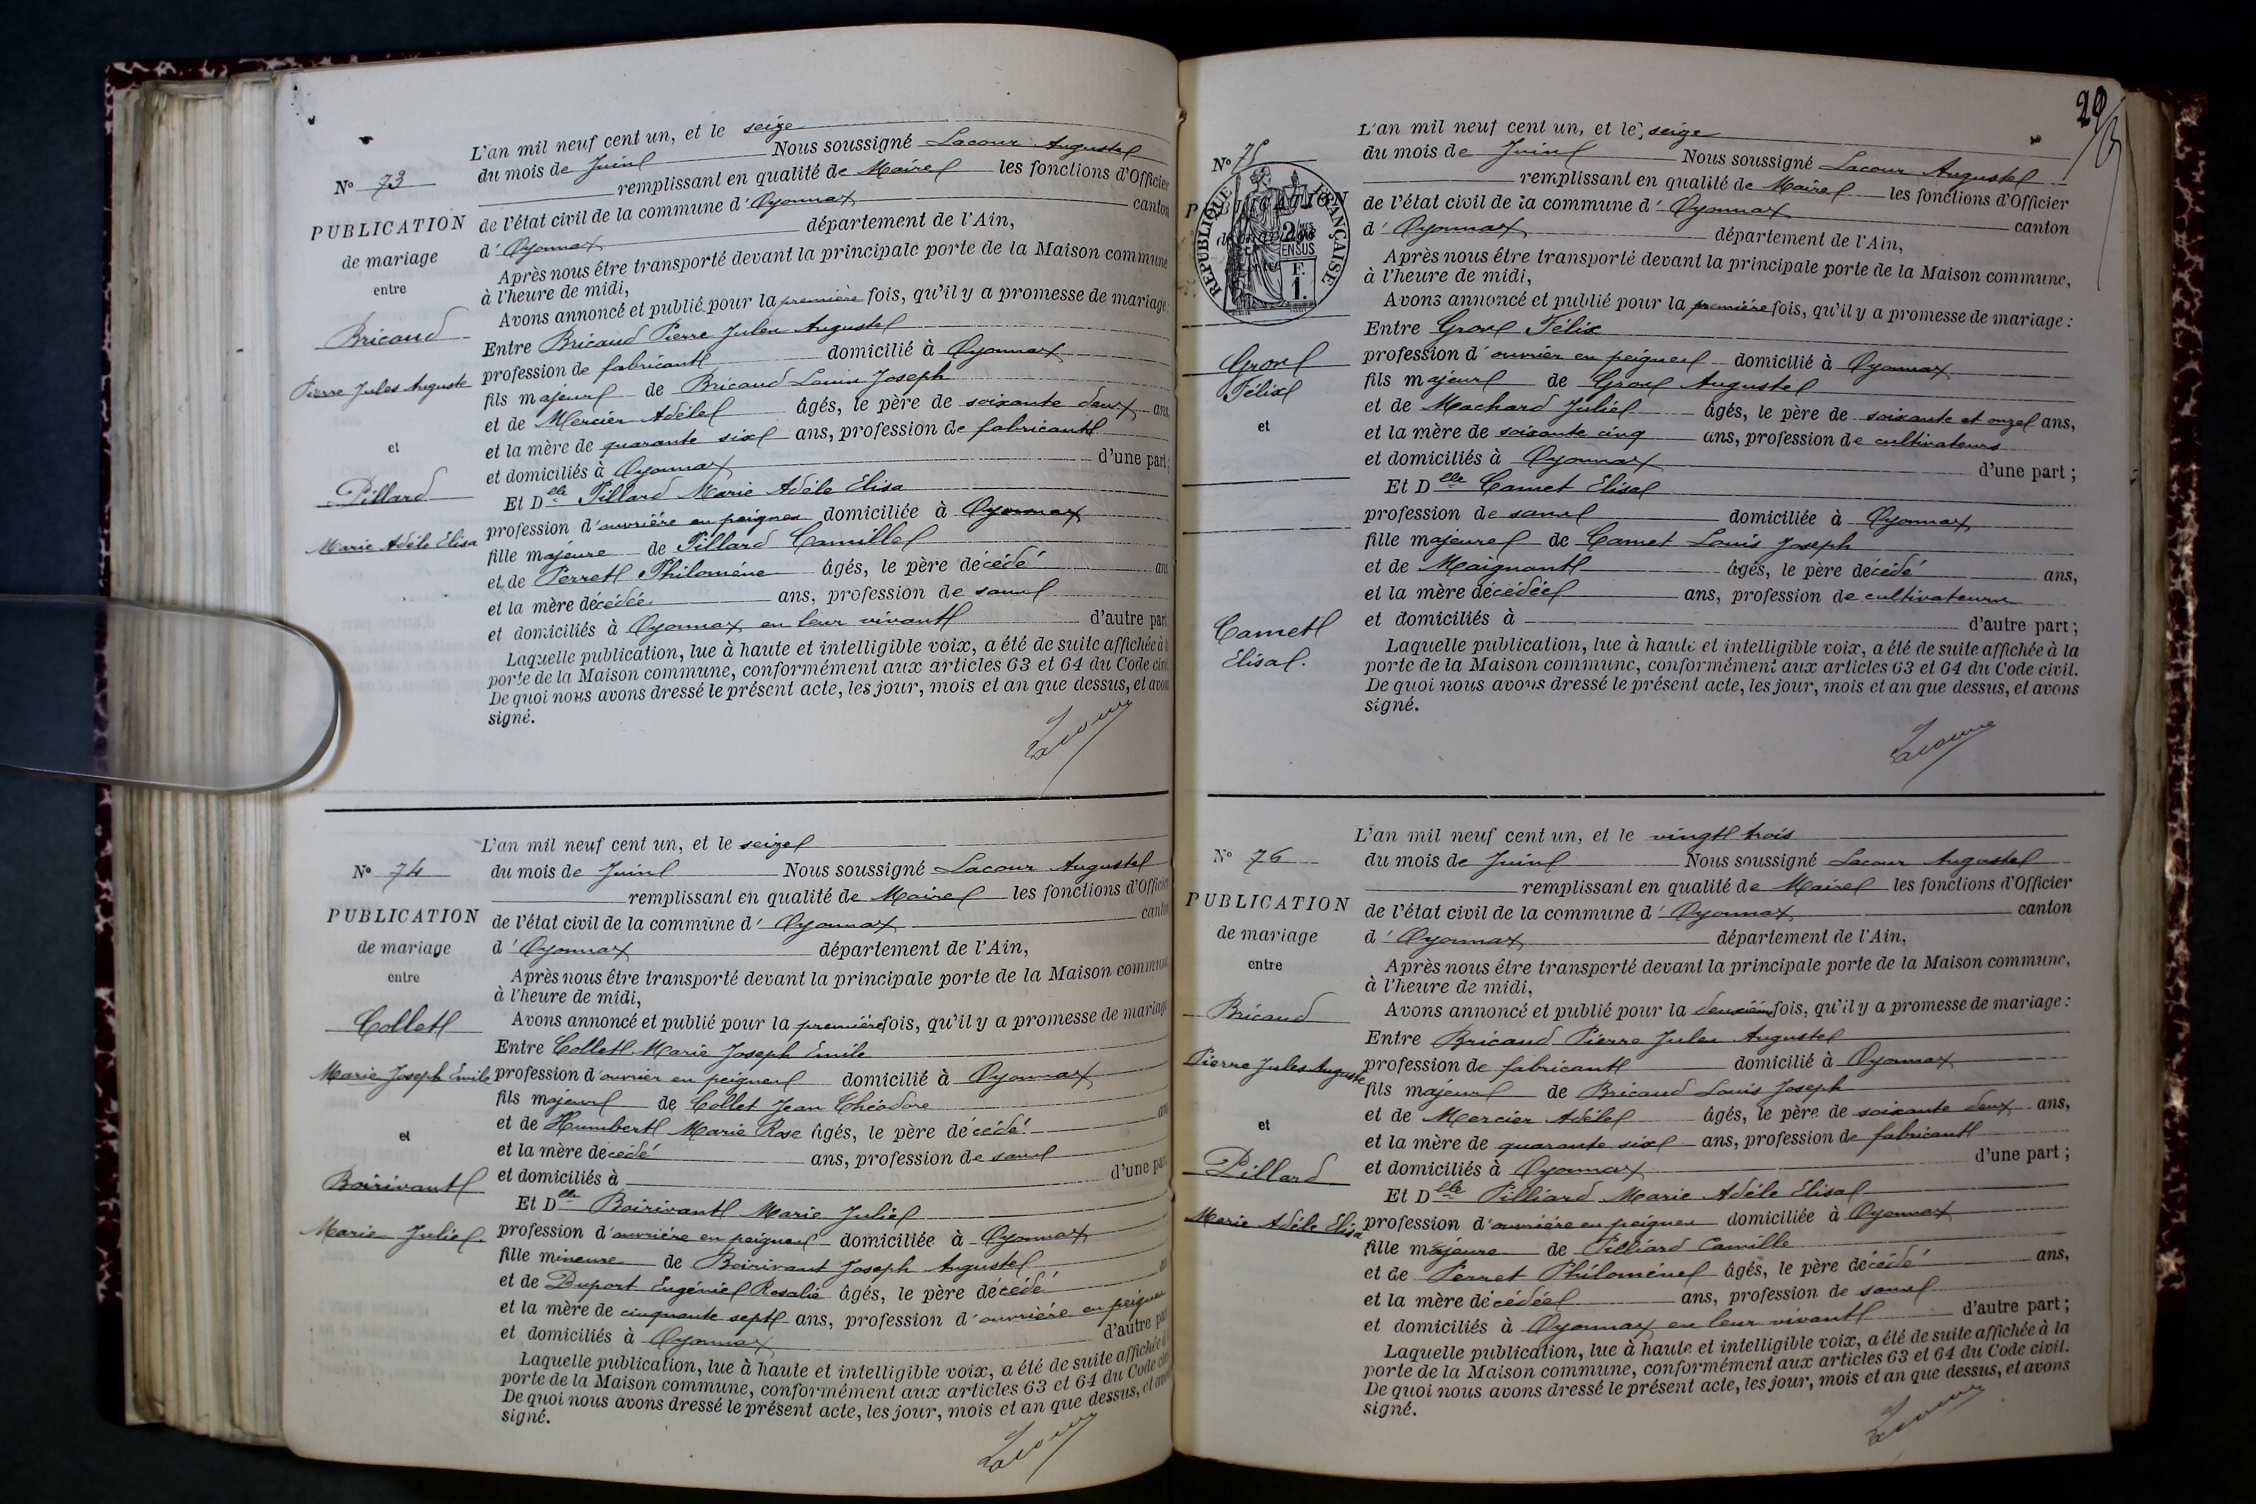 N° 73
PUBLICATION
de mariage
entre
Bricaud
Pierre Jules Auguste
et
Pillard
Marie Adèle Elisa
L'an mil neuf cent un, et le seize
du mois de Juin Nous soussigné Lacour Auguste
remplissant en qualité de Maire les fonctions d'Officier
de l'état civil de la commune d'Oyonnax canton
d'Oyonnax département de l'Ain,
Après nous être transporté devant la principale porte de la Maison commune
à l'heure de midi,
Avons annoncé et publié pour la première fois, qu'il y a promesse de mariage
Entre Bricaud Pierre Jules Auguste
profession de fabricant domicilié à Oyonnax
fils majeur de Bricaud Louis Joseph
et de Mercier Adèle âgés, le père de soixante deux ans,
et la mère de quarante six ans, profession de fabricant
et domiciliés à Oyonnax d'une part;
Et Delle Pillard Marie Adèle Elisa
profession d'ouvrière en peignes domiciliée à Oyonnax
fille majeure de Pillard Camille
et de Perret Philomène âgés, le père décédé ans
et la mère décédée ans, profession de sans
et domiciliés à Oyonnax en leur vivant d'autre part
Laquelle publication, lue à haute et intelligible voix, a été de suite affichée à la
porte de la Maison commune, conformément aux articles 63 et 64 du Code civil
De quoi nous avons dressé le présent acte, les jour, mois et an que dessus, et avons
signé.
Lacour
N° 74
PUBLICATION
de mariage
entre
Collet
Marie Joseph Emile
et
Boirivant
Marie Julie
L'an mil neuf cent un, et le seize
du mois de Juin Nous soussigné Lacour Auguste
remplissant en qualité de Maire les fonctions d'Officier
de l'état civil de la commune d'Oyonnax canton
d'Oyonnax département de l'Ain,
Après nous être transporté devant la principale porte de la Maison commune
à l'heure de midi,
Avons annoncé et publié pour la première fois, qu'il y a promesse de mariage
Entre Collet Marie Joseph Emile
profession d'ouvrier en peignes domicilié à Oyonnax
fils majeur de Collet Jean Théodore
et de Humbert Marie Rose âgés, le père décédé ans
et la mère décédé ans, profession de sans
et domiciliés à d'une part
Et Delle Boirivant Marie Julie
profession d'ouvrière en peignes domiciliée à Oyonnax
fille mineure de Boirivant Joseph Auguste
et de Duport Eugénie Rosalie âgés, le père décédé an
et la mère de cinquante sept ans, profession d'ouvrière en peignes
et domiciliés à Oyonnax d'autre part
Laquelle publication, lue à haute et intelligible voix, a été de suite affichée à
porte de la Maison commune, conformément aux articles 63 et 64 du Code civ
De quoi nous avons dressé le présent acte, les jour, mois et an que dessus, et avons
signé.
Lacour
29
N° 75
PUBLICATION
RÉPUBLIQUE FRANÇAISE
2/10es
EN SUS
F.
1.
Grove
Félix
et
Camet
Elisa.
L'an mil neuf cent un, et le seize
du mois de Juin Nous soussigné Lacour Auguste
remplissant en qualité de Maire les fonctions d'Officier
de l'état civil de la commune d'Oyonnax canton
d'Oyonnax département de l'Ain,
Après nous être transporté devant la principale porte de la Maison commune,
à l'heure de midi,
Avons annoncé et publié pour la première fois, qu'il y a promesse de mariage :
Entre Grove Félix
profession d'ouvrier en peignes domicilié à Oyonnax
fils majeur de Grove Auguste
et de Machard Julie âgés, le père de soixante et onze ans,
et la mère de soixante cinq ans, profession de cultivateurs
et domiciliés à Oyonnax d'une part ;
Et Delle Camet Elisa
profession de sans domiciliée à Oyonnax
fille majeure de Camet Louis Joseph
et de Maignant âgés, le père décédé ans,
et la mère décédée ans, profession de cultivateurs
et domiciliés à d'autre part ;
Laquelle publication, lue à haute et intelligible voix, a été de suite affichée à la
porte de la Maison commune, conformément aux articles 63 et 64 du Code civil.
De quoi nous avons dressé le présent acte, les jour, mois et an que dessus, et avons
signé.
Lacour
N° 76
PUBLICATION
de mariage
entre
Bricaud
Pierre Jules Auguste
et
Pillard
Marie Adèle Elisa
L'an mil neuf cent un, et le vingt trois
du mois de Juin Nous soussigné Lacour Auguste
remplissant en qualité de Maire les fonctions d'Officier
de l'état civil de la commune d'Oyonnax canton
d'Oyonnax département de l'Ain,
Après nous être transporté devant la principale porte de la Maison commune,
à l'heure de midi,
Avons annoncé et publié pour la deuxième fois, qu'il y a promesse de mariage :
Entre Bricaud Pierre Jules Auguste
profession de fabricant domicilié à Oyonnax
fils majeur de Bricaud Louis Joseph
et de Mercier Adèle âgés, le père de soixante deux ans,
et la mère de quarante six ans, profession de fabricant
et domiciliés à Oyonnax d'une part ;
Et Delle Pilliard Marie Adèle Elisa
profession d'ouvrière en peignes domiciliée à Oyonnax
fille majeure de Pilliard Camille
et de Perret Philomène âgés, le père décédé ans,
et la mère décédée ans, profession de sans
et domiciliés à Oyonnax en leur vivant d'autre part ;
Laquelle publication, lue à haute et intelligible voix, a été de suite affichée à la
porte de la Maison commune, conformément aux articles 63 et 64 du Code civil.
De quoi nous avons dressé le présent acte, les jour, mois et an que dessus, et avons
signé.
Lacour